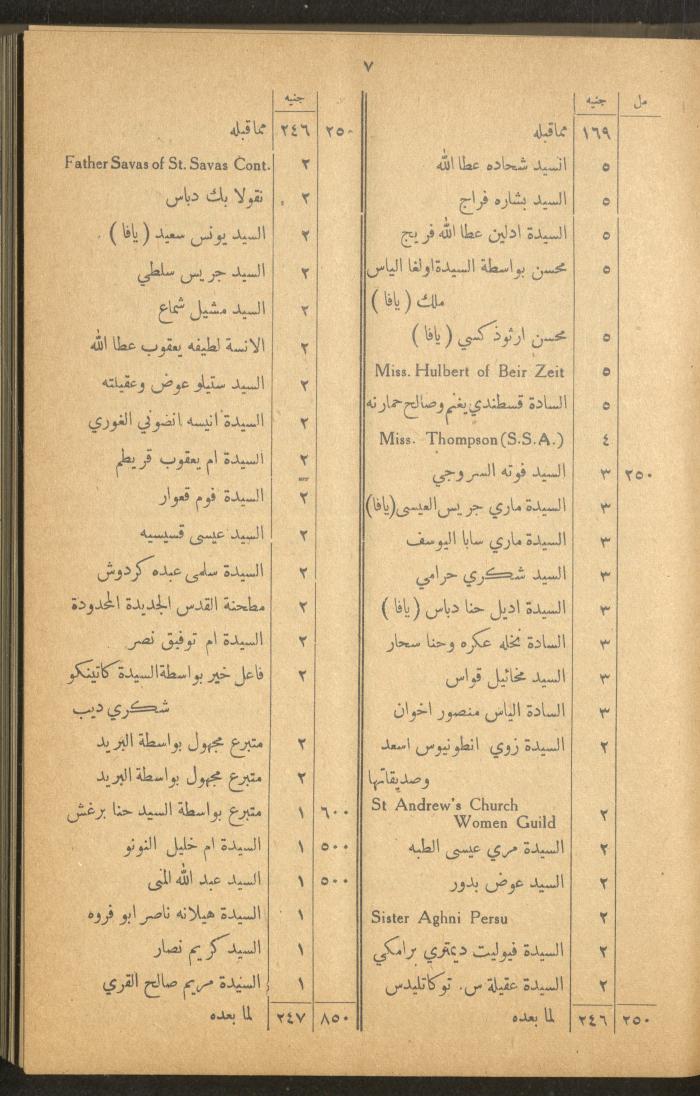 ٧
مل جنيه
١٦٩ مما قبله
٥ السيد شحاده عطا الله
٥ السيد بشاره فراج
٥ السيدة ادلين عطا الله فريج
٥ محسن بواسطة السيدة اولغا الياس
ملك ( يافا )
٥ محسن ارثوذكسي ( يافا )
٥ Miss. Hulbert of Beir Zeit
٥ السادة قسطندي يغنم وصالح حمارنه
٤ Miss. Thompson (S.S.A.)
٢٥٠ ٣ السيد فوته السروجي
٣ السيدة ماري جريس العيسى (يافا)
٣ السيدة ماري سابا اليوسف
٣ السيد شكري حرامي
٣ السيدة اديل حنا دباس ( يافا )
٣ السادة نخله عكره وحنا سحار
٣ السيد مخائيل قواس
٣ السادة الياس منصور اخوان
٢ السيدة زوي انطونيوس اسعد
وصديقاتها
٢ St Andrew's Church
Women Guild
٢ السيدة مري عيسى الطبه
٢ السيد عوض بدور
٢ Sister Aghni Persu
٢ السيدة فيوليت ديمتري برامكي
٢ السيدة عقيلة س. توكاتليدس
٢٥٠ ٢٤٦ لما بعده
جنيه
٢٥٠ ٢٤٦ مما قبله
٢ Father Savas of St. Savas Cont.
٢ نقولا بك دباس
٢ السيد يونس سعيد ( يافا )
٢ السيد جريس سلطي
٢ السيد مشيل شماع
٢ الانسة لطيفه يعقوب عطا الله
٢ السيد ستيلو عوض وعقيلته
٢ السيدة انيسه انضوني الغوري
٢ السيدة ام يعقوب قريطم
٢ السيدة فوم قعوار
٢ السيد عيسى قسيسيه
٢ السيدة سلمى عبده كردوش
٢ مطحنة القدس الجديدة المحدودة
٢ السيدة ام توفيق نصر
٢ فاعل خير بواسطة السيدة كاتينكو
شكري ديب
٢ متبرع مجهول بواسطة البريد
٢ متبرع مجهول بواسطة البريد
٦٠٠ ١ متبرع بواسطة السيد حنا برغش
٥٠٠ ١ السيدة ام خليل النونو
٥٠٠ ١ السيد عبد الله المنى
١ السيدة هيلانه ناصر ابو فروه
١ السيد كريم نصار
١ السيدة مريم صالح القري
٨٥٠ ٢٤٧ لما بعده